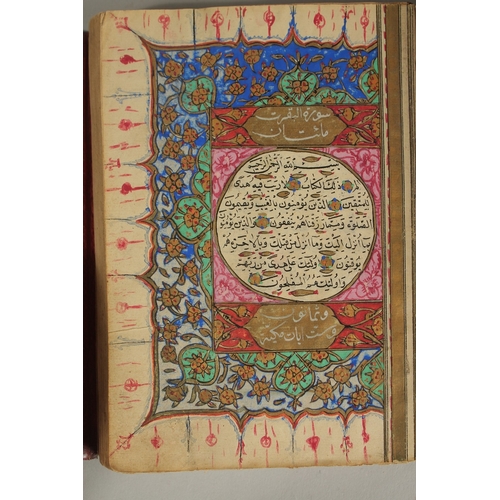 سورة البقرت
مائتان
بسم الله الرحمن الرحيم
الم ذلك الكتاب لا ريب فيه هدى
للمتقين الذين يؤمنون بالغيب ويقيمون
الصلوة ومما رزقناهم ينفقون والذين يؤمنون
بما انزل اليك وما انزل من قبلك وبالاخرة هم
يوقنون اولئك على هدى من ربهم
واولئك هم المفلحون
وثمانون
ست ايات مكية